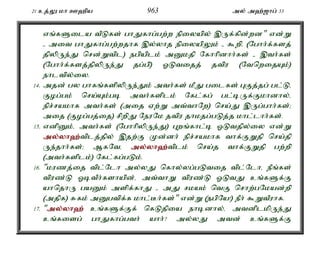 21 உத்லு மா ஊஹிய 963 அல் அஹ்ஜாப் 33
எங்களுடைய வீடுகள் பாதுகாப்பற்ற நிலையில் இருக்கின்றன" என்று
- அவை பாதுகாப்பற்றதாக இல்லாத நிலையிலும் - கூறி (போர்க்களத்
திலிருந்து சென்றுவிட) நபியிடம் அனுமதி கோரினார்கள் - இவர்கள்
(போர்க்களத்திலிருந்து தப்பி) ஓடுவதைத் தவிர (வேறெதையும்)
நாடவில்லை.
14. அதன் பல பாகங்களிலிருந்தும் அவர்கள் மீது படைகள் புகுத்தப் பட்டு,
குழப்பம் செய்யும்படி அவர்களிடம் கேட்கப் பட்டிருக்குமானால்,
நிச்சயமாக அவர்கள் (அதை ஏற்று அவ்வாறே) செய்து இருப்பார்கள்;
அதை (குழப்பத்தை) சிறிது நேரமே தவிர தாமதப்படுத்த மாட்டார்கள்.
15. எனினும், அவர்கள் (போரிலிருந்து) புறங்காட்டி ஓடுவதில்லை என்று
அல்லாஹ்விடத்தில் இதற்கு முன்னர் நிச்சயமாக வாக்குறுதி செய்தி
ருந்தார்கள்; ஆகவே, அல்லாஹ்விடம் செய்த வாக்குறுதி பற்றி
(அவர்களிடம்) கேட்கப்படும்.
16. "மரணத்தை விட்டோ அல்லது கொல்லப்படுவதை விட்டோ, நீங்கள்
விரண்டு ஓடினீர்களாயின், அவ்வாறு விரண்டு ஓடுவது உங்களுக்கு
யாதொரு பயனும் அளிக்காது - அது சமயம் வெகு சொற்பமேயன்றி
(அதிக) சுகம் அனுபவிக்க மாட்டீர்கள்" என்று (நபியே) நீர் கூறுவீராக.
17. "அல்லாஹ் உங்களுக்குக் கெடுதியை நாடினால், அவனிடமிருந்து
உங்களைப் பாதுகாப்பவர் யார்? அல்லது அவன் உங்களுக்கு